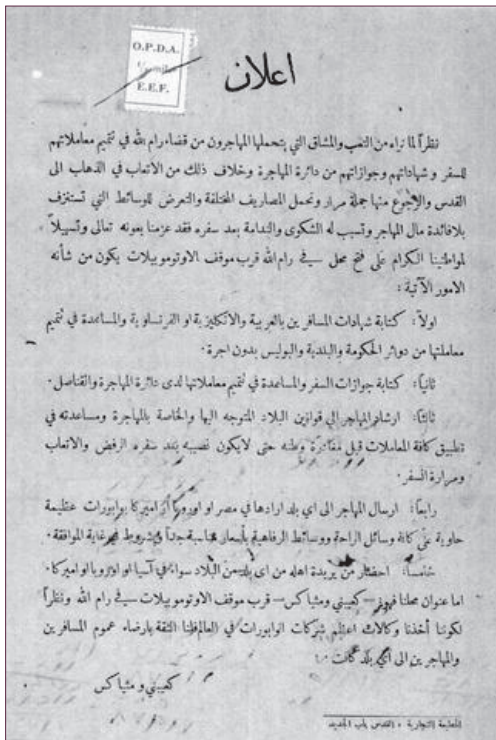 O.P.D.A.
E.E.F.
اعلان
نظراً لما نراه من التعب والمشاق التي يتحملها المهاجرون من قضاء رام الله في تتميم معاملاتهم
للسفر وشهاداتهم وجوازاتهم من دائرة المهاجرة وخلاف ذلك من الاتعاب في الذهاب الى
القدس والرجوع منها جملة مرار وتحمل المصاريف المختلفة والتعرض للوسائط التي تستنزف
بلافائدة مال المهاجر وتسبب له الشكوى والندامة بعد سفره فقد عزمنا بعونه تعالى وتسهيلاً
لمواطنينا الكرام على فتح محل في رام الله قرب موقف الاوتوموبيلات يكون من شأنه
الامور الآتية :
اولاً : كتابة شهادات المسافرين بالعربية والانكليزية او الفرنساوية والمساعدة في تتميم
معاملتها من دوائر الحكومة والبلدية والبوليس بدون اجرة .
ثانياً : كتابة جوازات السفر والمساعدة في تتميم معاملاتها لدى دائرة المهاجرة والقناصل .
ثالثاً : ارشاد المهاجر الى قوانين البلاد المتوجه اليها والخاصة بالمهاجرة ومساعدته في
تطبيق كافة المعاملات قبل مغادرة وطنه حتى لايكون نصيبه بعد سفره الرفض والاتعاب
ومرارة السفر .
رابعاً : ارسال المهاجر الى اي بلد ارادها في مصر او اوروبا او اميركا بوابورات عظيمة
حاوية على كافة وسائل الراحة ووسائط الرفاهية بأسعار مناسبة جداً وشروط في غاية الموافقة .
خامساً : احضار من يريده اهله من اى بلد من البلاد سواء في آسيا او اوروبا او اميركا .
اما عنوان محلنا فهو – كعيبني ومشباكس – قرب موقف الاوتوموبيلات في رام الله ونظراً
لكوننا أخذنا وكالات اعظم شركات الوابورات في العالم فلنا الثقة بارضاء عموم المسافرين
والمهاجرين الى اي بلد كانت
كعيبني ومشباكس
المطبعة التجارية . القدس باب الجديد